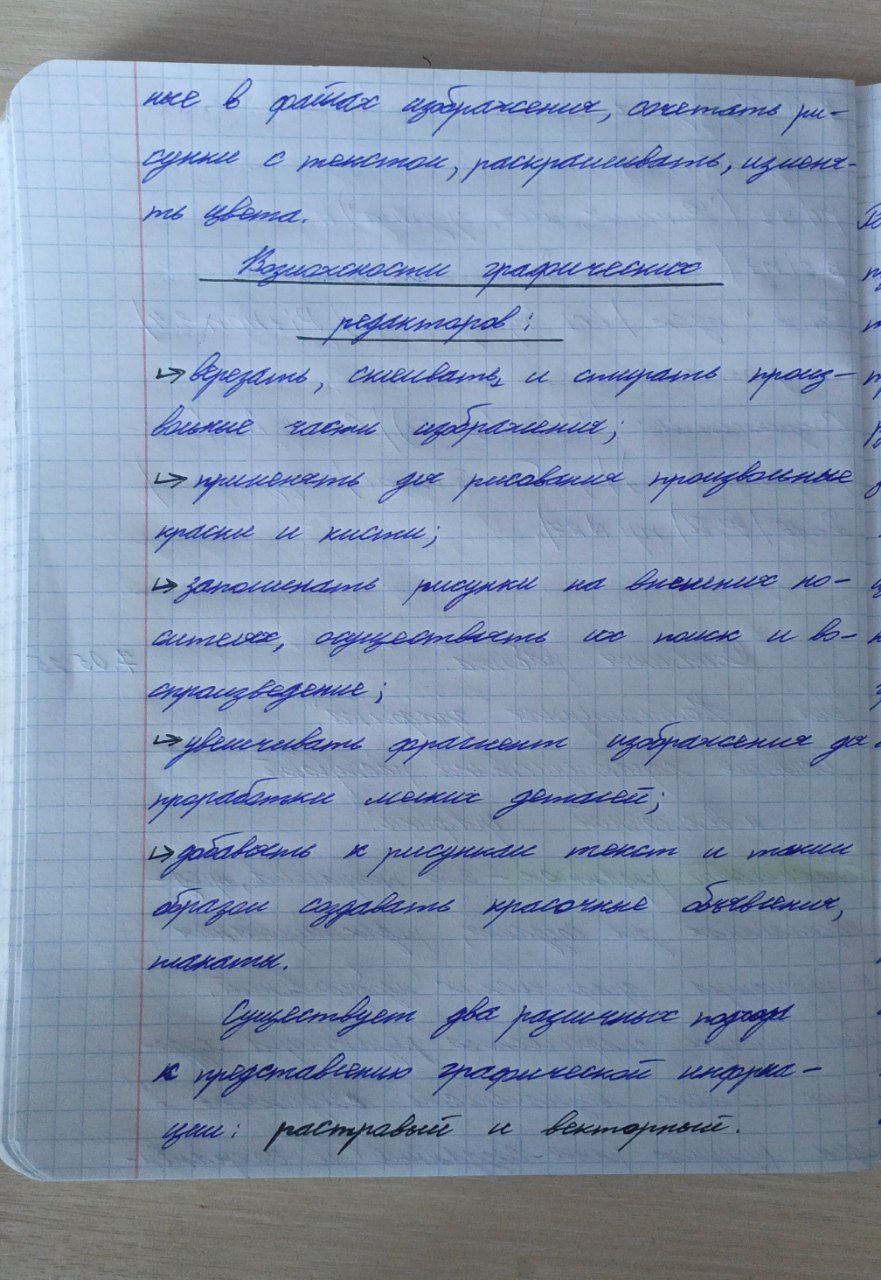 ные в файлах изображения, сочетать ри-
сунки с текстом, раскрашивать, изменя-
ть цвета.
Возможности графических
редакторов:
↳ вырезать, склеивать, и стирать произ-
вольные части изображения;
↳ применять для рисования произвольные
краски и кисти;
↳ запоминать рисунки на внешних но-
сителях, осуществлять их поиск и во-
спроизведение;
↳ увеличивать фрагмент изображения для
проработки мелких деталей;
↳ добавлять к рисункам текст и таким
образом создавать красочные объявления,
плакаты.
Существует два различных подхода
к представлению графической информа-
ции: растравый и векторный.